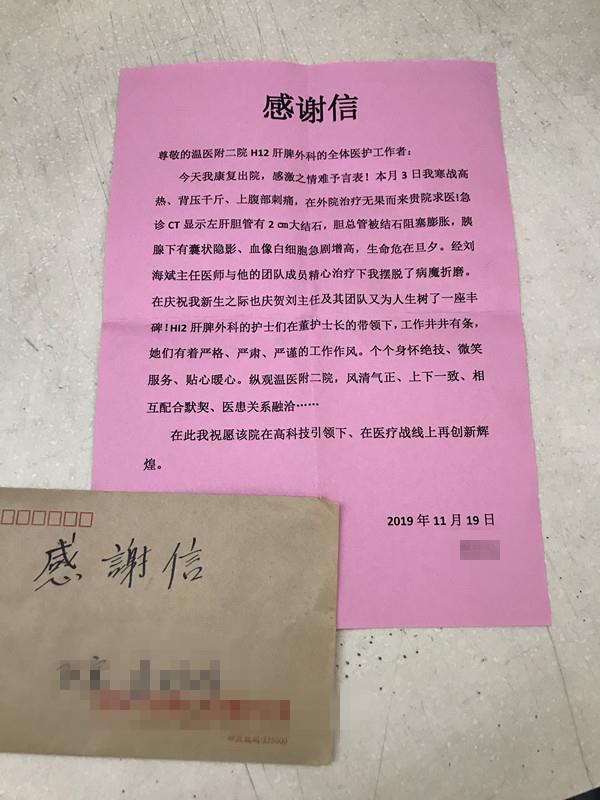 感谢信
尊敬的温医附二院 H12 肝脾外科的全体医护工作者：
今天我康复出院，感激之情难予言表！本月 3 日我寒战高
热、背压千斤、上腹部刺痛，在外院治疗无果而来贵院求医!急
诊 CT 显示左肝胆管有 2 ㎝大结石，胆总管被结石阻塞膨胀，胰
腺下有囊状隐影、血像白细胞急剧增高，生命危在旦夕。经刘
海斌主任医师与他的团队成员精心治疗下我摆脱了病魔折磨。
在庆祝我新生之际也庆贺刘主任及其团队又为人生树了一座丰
碑！HI2 肝脾外科的护士们在董护士长的带领下，工作井井有条，
她们有着严格、严肃、严谨的工作作风。个个身怀绝技、微笑
服务、贴心暖心。纵观温医附二院，风清气正、上下一致、相
互配合默契、医患关系融洽……
在此我祝愿该院在高科技引领下、在医疗战线上再创新辉
煌。
2019 年 11 月 19 日
感謝信
邮政编码:325000